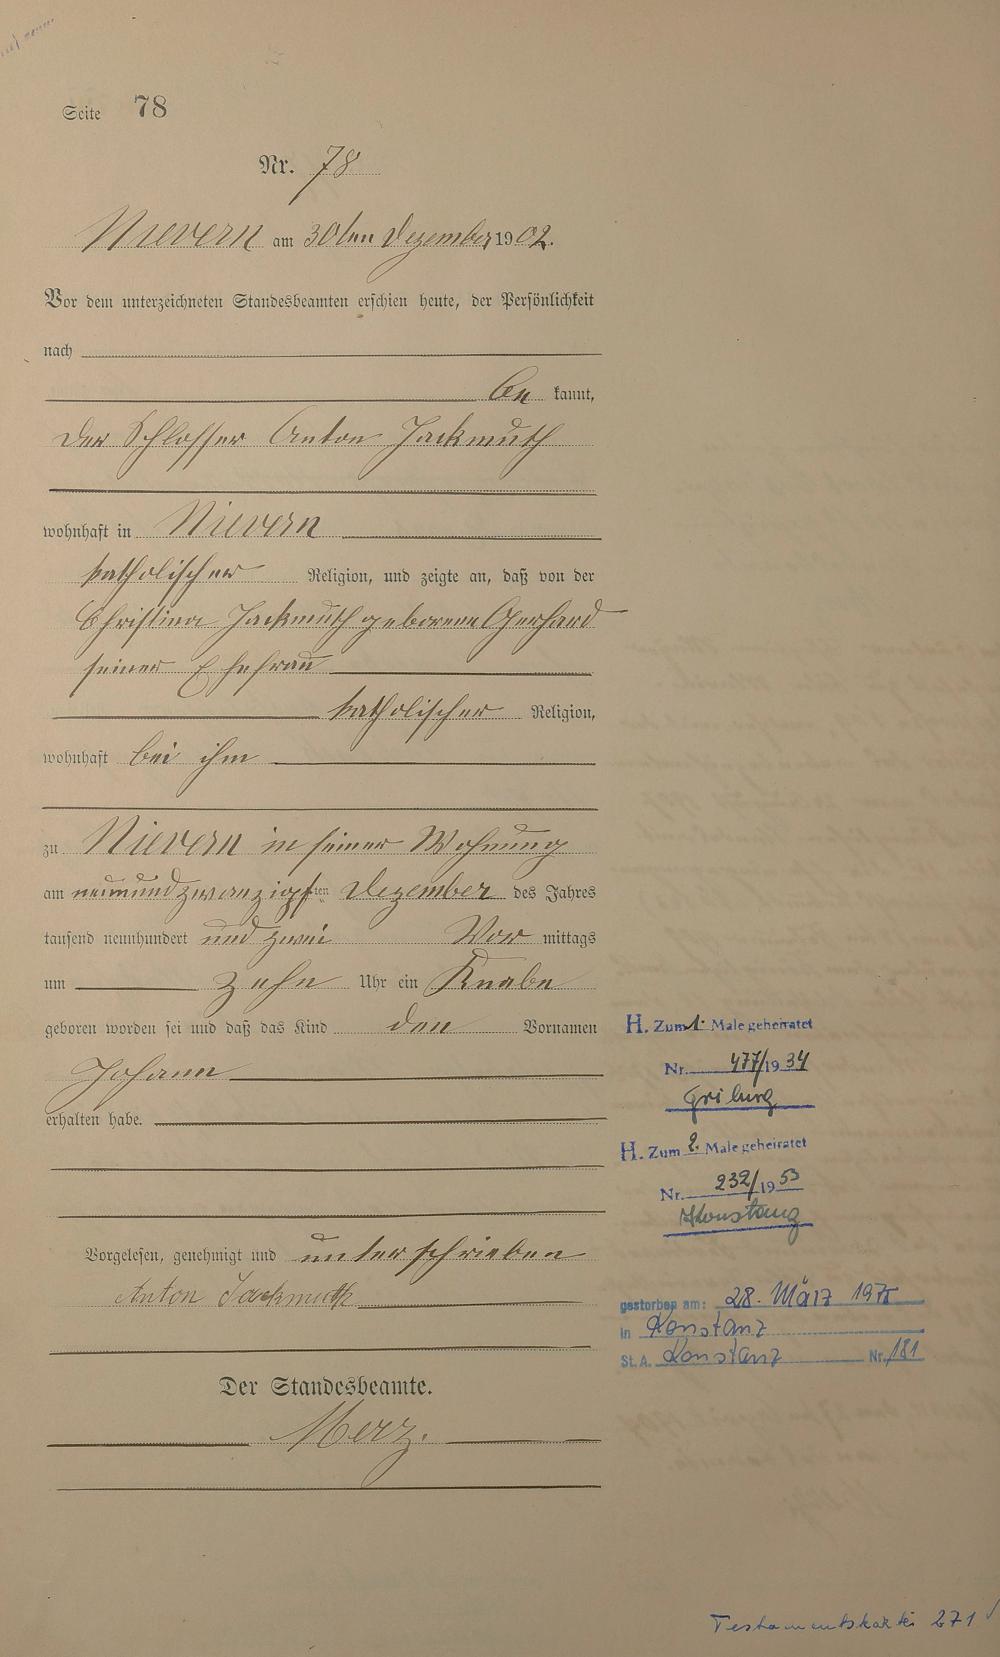 Seite 78
Nr. 78
Nievern am 30ten Dezember 1902.
Vor dem unterzeichneten Standesbeamten erschien heute, der Persönlichkeit
nach
be kannt,
der Schlosser Anton Jackmuth
wohnhaft in Nievern
katholischer Religion, und zeigte an, daß von der
Christina Jackmuth geborene Gerhard
seiner Ehefrau
katholischer Religion,
wohnhaft bei ihm
zu Nievern in seiner Wohnung
am neunundzwanzigsten Dezember des Jahres
tausend neunhundert und zwei Vor mittags
um zehn Uhr ein Knabe
geboren worden sei und daß das Kind den Vornamen
Johann
erhalten habe.
Vorgelesen, genehmigt und unterschrieben
Anton Jackmuth
Der Standesbeamte.
Merz.
H. Zum 1. Male geheiratet
Nr. 477/1934
H. Zum 2. Male geheiratet
Nr. 232/1953
Konstanz
gestorben am: 28. März 1975
in Konstanz
St.A. Konstanz Nr. 181
Testamentskartei 271